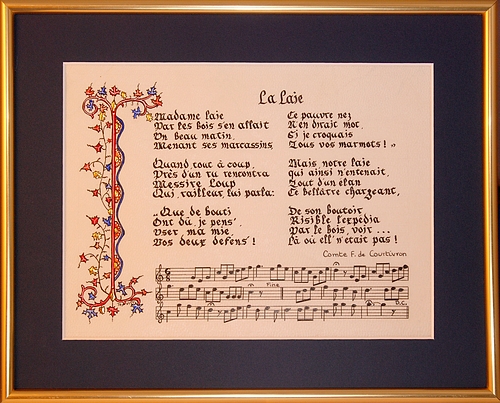 La Laie
Madame laie
Par les bois s'en allait
Un beau matin,
Menant ses marcassins.
Quand, tout à coup,
Près d'un ru rencontra
Messire Loup
Qui, railleur, lui parla:
"Que de bouti
Ont dû, je pens'
User, ma mie,
Vos deux defens'!
Ce pauvre nez
N'en dirait mot,
Si je croquais
Tous vos marmots!"
Mais notre laie
qui ainsi n'entenait,
Tout d'un élan
Ce bellâtre chargeant,
De son boutoir
Risible l'expédia
Par le bois, voir ...
Là où ell' n'était pas!
Comte F. de Courtivron
Fine
D.C.